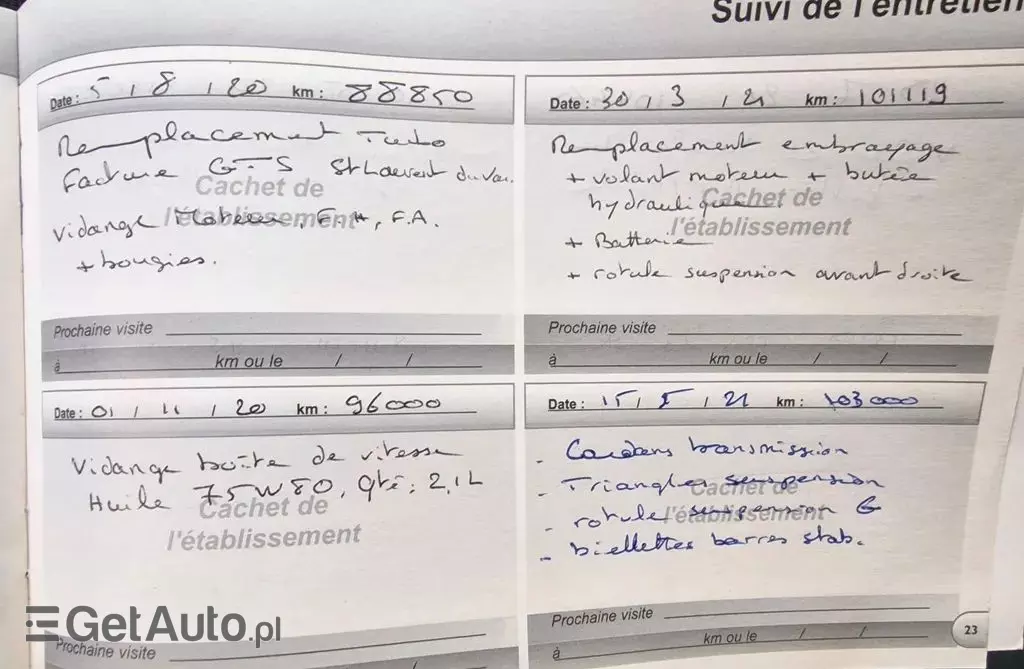 Suivi de l'entretien
Date : 5 / 8 / 20 km : 88850
Remplacement Turbo
Facture GTS St Laurent du Var.
Cachet de
l'établissement
vidange Moteur, F.H, F.A.
+ bougies.
Prochaine visite
à km ou le / /
Date : 30 / 3 / 21 km : 101119
Remplacement embrayage
+ volant moteur + butée
hydraulique
Cachet de
l'établissement
+ Batterie
+ rotule suspension avant droite
Prochaine visite
à km ou le / /
Date : 01 / 11 / 20 km : 96000
Vidange boîte de vitesse
Huile 75W80, Qté : 2,1L
Cachet de
l'établissement
Prochaine visite
Date : 15 / 5 / 21 km : 103000
- Cardans transmission
- Triangles suspension
Cachet de
- rotule suspension G
l'établissement
- biellettes barres stab.
Prochaine visite
à km ou le / /
23
GetAuto.pl